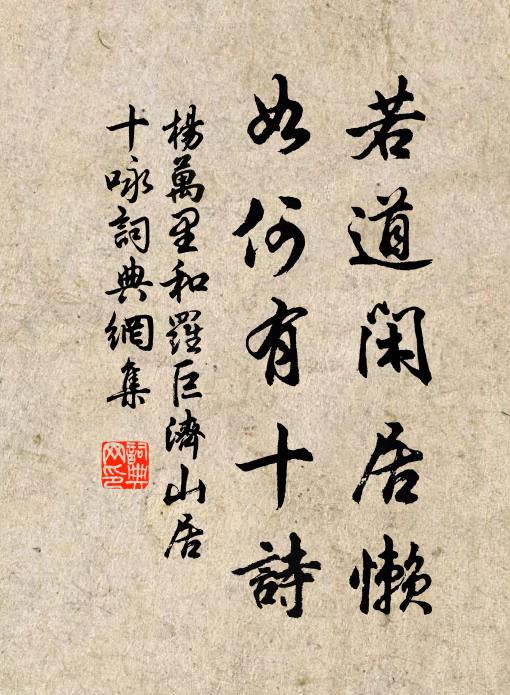 若道閑居懶
如何有十詩
楊萬里和羅巨濟山居
十咏詞典網集
詞典網印